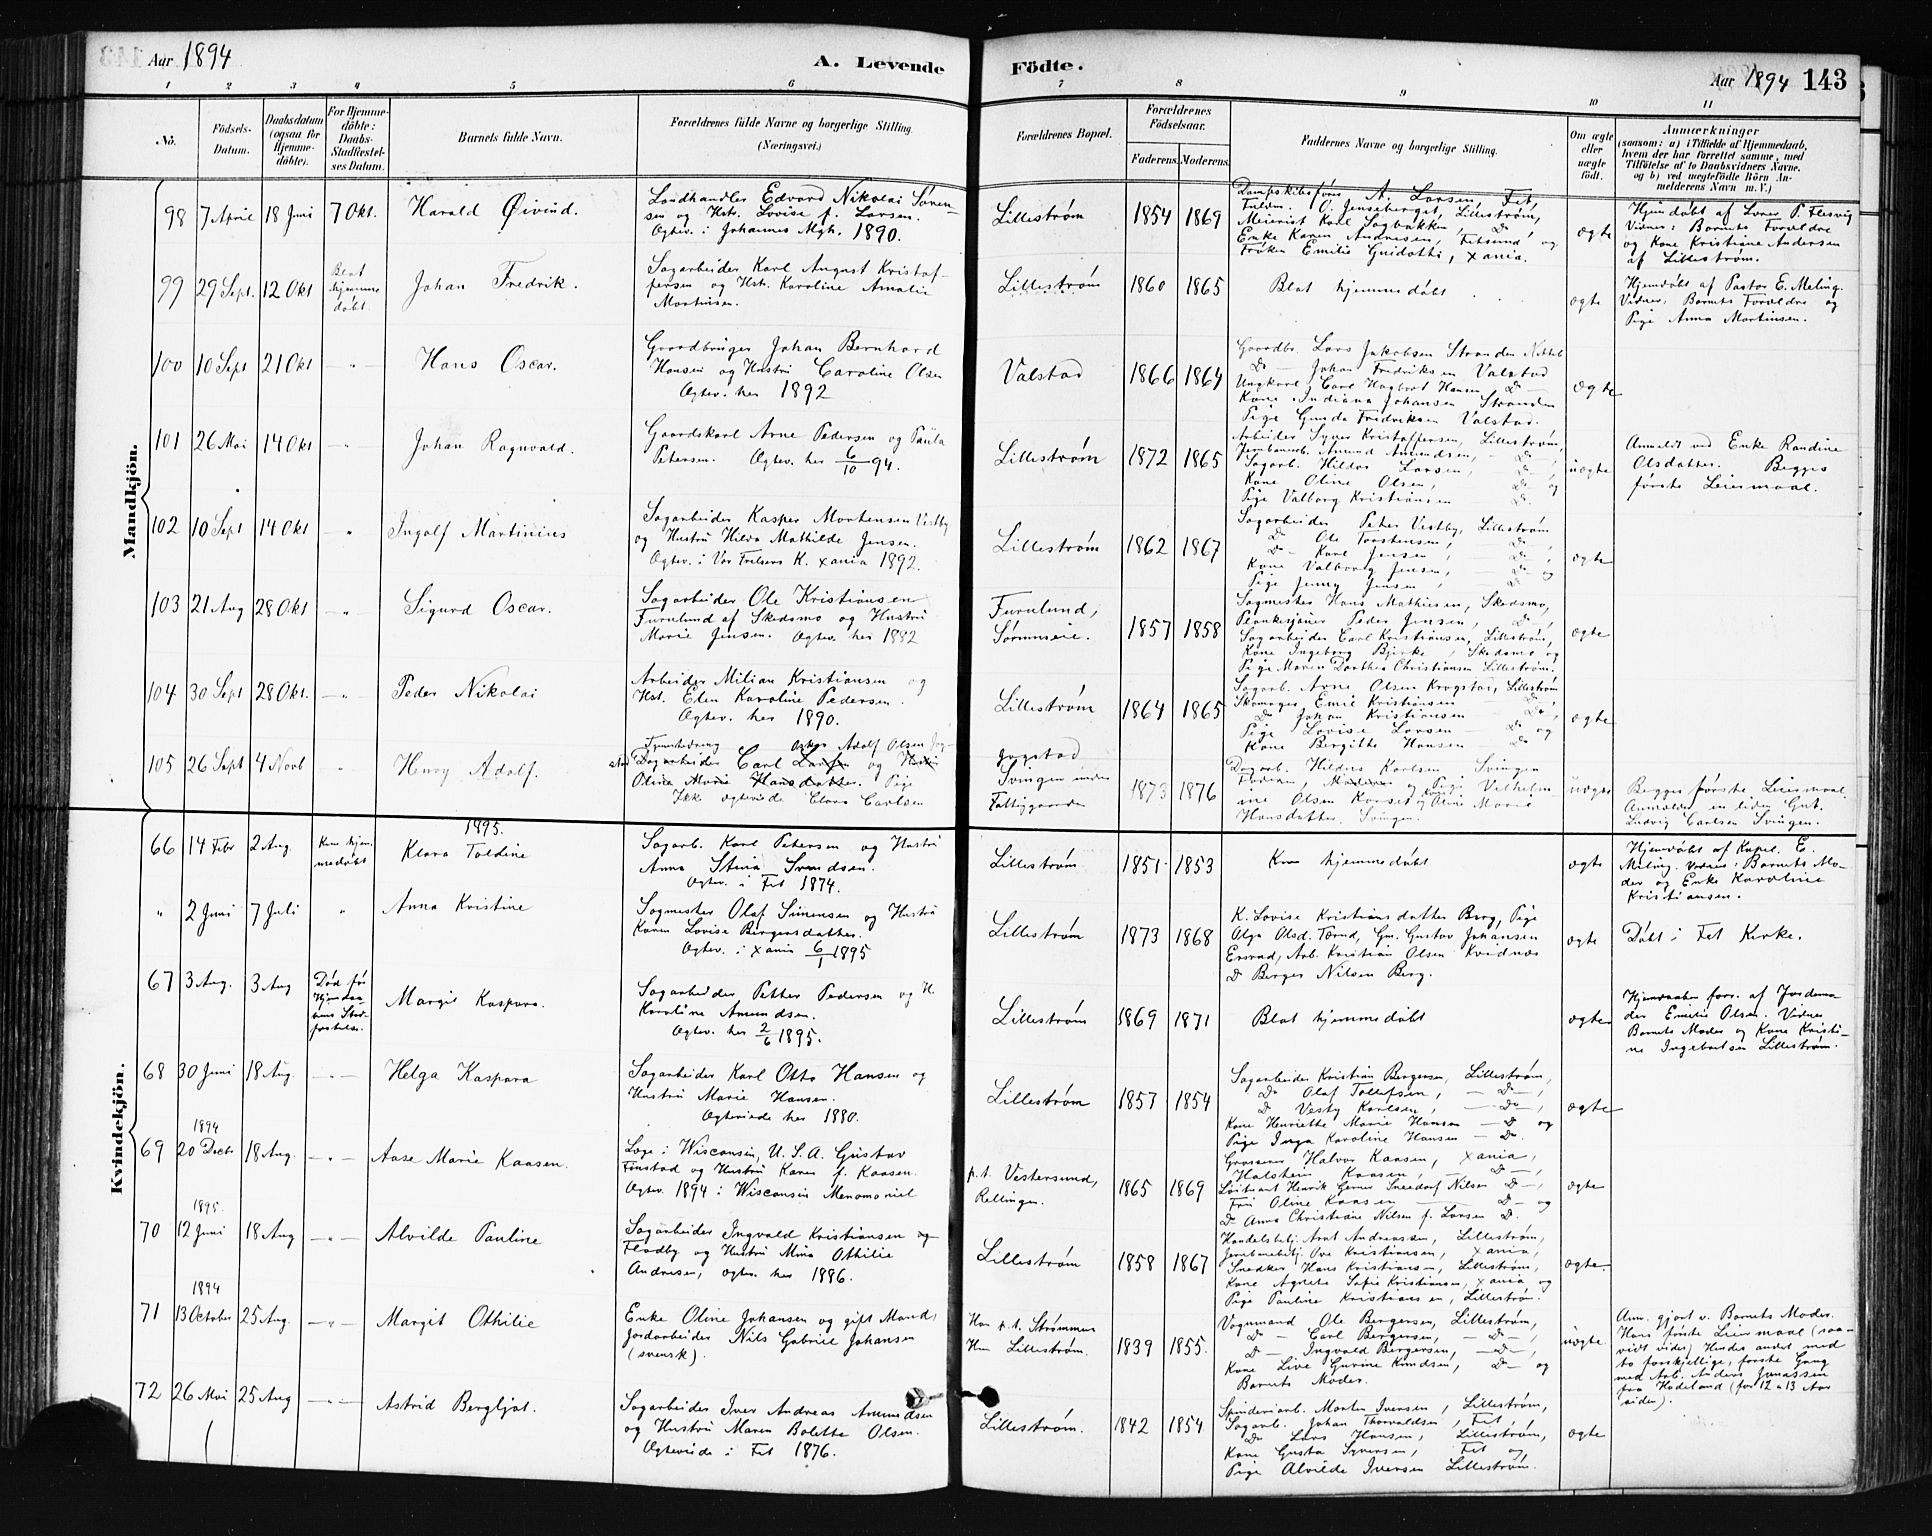 Aar 1894
A. Levende
Födte.
Aar 1894 143
1 2 3 4 5 6 7 8 9 10 11
No.
Födsels-Datum.
Daabsdatum (ogsaa for Hjemmedöbte).
For Hjemmedöbte: Daabs-Stadfæstelses Datum.
Barnets fulde Navn.
Forældrenes fulde Navne og borgerlige Stilling. (Næringsvei.)
Forældrenes Bopæl.
Forældrenes Födselsaar.
Faderens. Moderens.
Faddernes Navne og borgerlige Stilling.
Om ægte eller uægte födt.
Anmærkninger
(saasom: a) i Tilfælde af Hjemmedaab,
hvem der har forrettet samme, med
Tilföielse af to Daabsvidners Navne,
og b) ved uegtefödte Börn Anmelderens Navn m. V.)
Mandkjön.
98 7 April 18 Juni 7 Okt. Harald Øivind.
Landhandler Edvard Nikolai Søren-
sen og Hstr. Lovise f. Larsen.
Ægtev. i Johannes Mgh. 1890.
Lillestrøm 1854 1869
Dampskibsfører A. Larsen Fet,
Meierist Karl Sogbakken, Do
Enke Karen Andresen, Fetsund og
Frøken Emilie Guidotti, Xania.
ægte
Vidner: Barnets Forældre
og Kone Kristiane Andersen
af Lillestrøm.
99 29 Sept. 12 Okt Blot hjemmedøbt. Johan Fredrik.
Sagarbeider Karl August Kristof-
fersen og Hst. Karoline Amalie
Martinsen.
Lillestrøm 1860 1865
Blot hjemmedøbt
ægte
Hjemdøbt af Pastor E. Meling.
Vidner: Barnets Forældre og
Pige Anna Martinsen.
100 10 Sept 21 Okt - " - Hans Oscar.
Gaardbruger Johan Bernhard
Hansen og Hustru Caroline Olsen
Ægtev. her 1892
Valstad 1866 1864
Gaardbr. Lars Jakobsen Stranden Nittel
Do - Johan Fredriksen Valstad
Ungkarl Carl Hagbart Hansen Do -
Kone Indiana Johansen Stranden
Pige Gunda Fredriksen Valstad.
ægte
101 26 Mai 14 Okt - " - Johan Ragnvald.
Gaardskarl Arne Pedersen og Paula
Petersen. Ægtev. her 6/10 94.
Lillestrøm 1872 1865
Arbeider Syver Kristoffersen, Lillestrøm,
Jernbanearb. Amund Amundsen, - Do -,
Sagarb. Hildor Larsen, - Do -,
Kone Oline Olsen, Do og
Pige Valborg Kristiansen Do
uægte
Anmeldt ved Enke Randine
Olsdatter. Begges
første Leiermaal.
102 10 Sept 14 Okt - " - Ingolf Martinius
Sagarbeider Kasper Mortensen Vestby
og Hustru Hilda Mathilde Jensen.
Ægtev. i Vor Frelsers K. Xania 1892.
Lillestrøm 1862 1867
Sagarbeider Peter Vestby, Lillestrøm
Do Ole Torstensen, - Do -,
Do - Karl Jensen, - Do -,
Kone Valborg Jensen, - Do og
Pige Jenny Jensen, Do
ægte
103 21 Aug 28 Okt - " - Sigurd Oscar.
Sagarbeider Ole Kristiansen
Furulund af Skedsmo og Hustru
Marie Jensen. Ægtev. her 1882
Furulund,
1857 1858
Sagmester Hans Mathisen, Skedsmo,
Peder Jensen, Do,
Sagarbeider Carl Kristiansen, Lillestrøm,
Kone Ingeborg Bjerke, Skedsmo og
Pige Maren Dorthea Christiansen Lillestrøm.
ægte
104 30 Sept 28 Okt. - " - Peder Nikolai
Arbeider Milian Kristiansen og
Hst. Elen Karoline Pedersen.
Ægtev. her 1890.
Lillestrøm 1864 1865
Sagarb. Arne Olsen Krogstad, Lillestrøm
Skomager Emil Kristiansen - Do -,
Do Johan Kristiansen - Do,
Pige Lovise Larsen - Do og
Kone Bergitte Hansen - Do
ægte
105 26 Sept 4 Novb " Henry Adolf.
Oskar Adolf Olsen
Dagarbeider Carl Larsen og Hustru
Oline Marie Hansdatter. Pige
Ikke ægteviede Clara Carlsen
Jogstad
Svingen under
Fattiggaarden
1873 1876
Dagarb. Hildus Karlsen Svingen
Vilhelm-
ine Olsen Korset og Oline Marie
Hansdatter Svingen.
uægte
Begges første Leiermaal.
Anmelder en liden Gut.
Ludvig Carlsen Svingen.
Kvindekjön.
1895.
66 14 Febr 2 Aug. Kun hjemmedøbt Klara Toldine
Sagarb. Karl Petersen og Hustru
Anna Stina Svendsen.
Ægtev. i Fet 1874.
Lillestrøm 1851 1853
Kun hjemmedøbt
ægte
Hjemdøbt af Kapel. E.
Meling. Vidner: Barnets Mo-
der og Enke Karoline
Kristiansen.
" 2 Juni 7 Juli " Anna Kristine
Sagmester Olaf Simensen og Hustru
Karen Lovise Bergersdatter.
Ægtev. i Xania 6/1 1895
Lillestrøm 1873 1868
K. Lovise Kristiansdatter Berg, Pige
Olga Olsd. Tornd, Gm. Gustav Johansen
Ersrud, Arb. Kristian Olsen Kvidnæs
Do Berger Nilsen Berg.
ægte
Døbt i Fet Kirke.
67 3 Aug. 3 Aug Død før Hjemdaabens Stadfæstelse. Margit Kaspara.
Sagarbeider Petter Pedersen og H.
Karoline Amundsen.
Ægtev. her 2/6 1895.
Lillestrøm 1869 1871
Blot hjemmedøbt
ægte
Hjemdaaben forr. af Jordemo-
der Emilie Olsen. Vidner
Barnets Moder og Kone Kristi-
ne Ingebretsen Lillestrøm.
68 30 Juni 18 Aug. - " - Helga Kaspara
Sagarbeider Karl Otto Hansen og
Hustru Marie Hansen.
Ægteviede her 1880.
Lillestrøm 1857 1854
Sagarbeider Kristian Bergersen, Lillestrøm,
Do Olaf Tollefsen, - Do -,
Do Vesby Karlsen, - Do -,
Kone Henriette Marie Hansen - Do og
Pige Inga Karoline Hansen - Do
ægte
1894
69 20 Decbr 18 Aug. - " - Aase Marie Kaasen.
Læge i Wisconsin, U.S.A. Gustav
Finstad og Hustru Karen f. Kaasen.
Ægtev. 1894 i Wisconsin Menomoniel
p.t. Vestersund,
Rellingen.
1865 1869
Grosserer Halvor Kaasen, Xania,
Halstein Kaasen, - Do -,
Løitnant Henrik Gerner Sneedorf Nilsen Do -,
Fru Oline Kaasen - Do - og
Do Anna Christiane Nilsen f. Larsen Do.
ægte
1895.
70 12 Juni 18 Aug - " - Alvilde Pauline
Sagarbeider Ingvald Kristiansen og
Flodby og Hustru Mina Othilie
Andresen, ægtev. her 1886.
Lillestrøm 1858 1867
Handelsbetj. Arnt Andreassen, Lillestrøm,
Jernbanebetj. Ove Kristiansen, Xania,
Snedker Hans Kristiansen, Lillestrøm,
Kone Agnete Sofie Kristiansen, Xania og
Pige Pauline Kristiansen, Lillestrøm.
ægte.
1894
71 13 October 25 Aug. - " - Margit Othilie
Enke Oline Johansen og gift Mand,
Jordarbeider Nils Gabriel Johansen
(svensk).
Han p.t. Strømmen
Hun Lillestrøm.
1839 1855.
Vognmand Ole Bergersen, Lillestrøm,
Do - Carl Bergersen, - Do -,
Do - Ingvald Bergersen, - Do -,
Kone Live Gurine Knudsen, Do - og
Barnets Moder.
uægte
Anm. gjort v. Barnets Moder.
Hans første Leiermaal (saa-
vidt vides) Hendes andet med
to forskjellige, første Gang
med Arb. Anders Jonassen
fra Hødeland (for 12 a 13 Aar
siden).
72 26 Mai 25 Aug - " - Astrid Bergljot.
Sagarbeider Iver Andreas Amundsen
og Hustru Maren Bolette Olsen.
Ægteviede i Fet 1876.
Lillestrøm. 1842 1854
Spinderiarb. Morten Iversen, Lillestrøm,
Sagarb. Johan Thorvaldsen, Fet,
Do Lars Hansen, Lillestrøm,
Kone Gusta Syversen, Fet og
Pige Alvilde Iversen Lillestrøm.
ægte